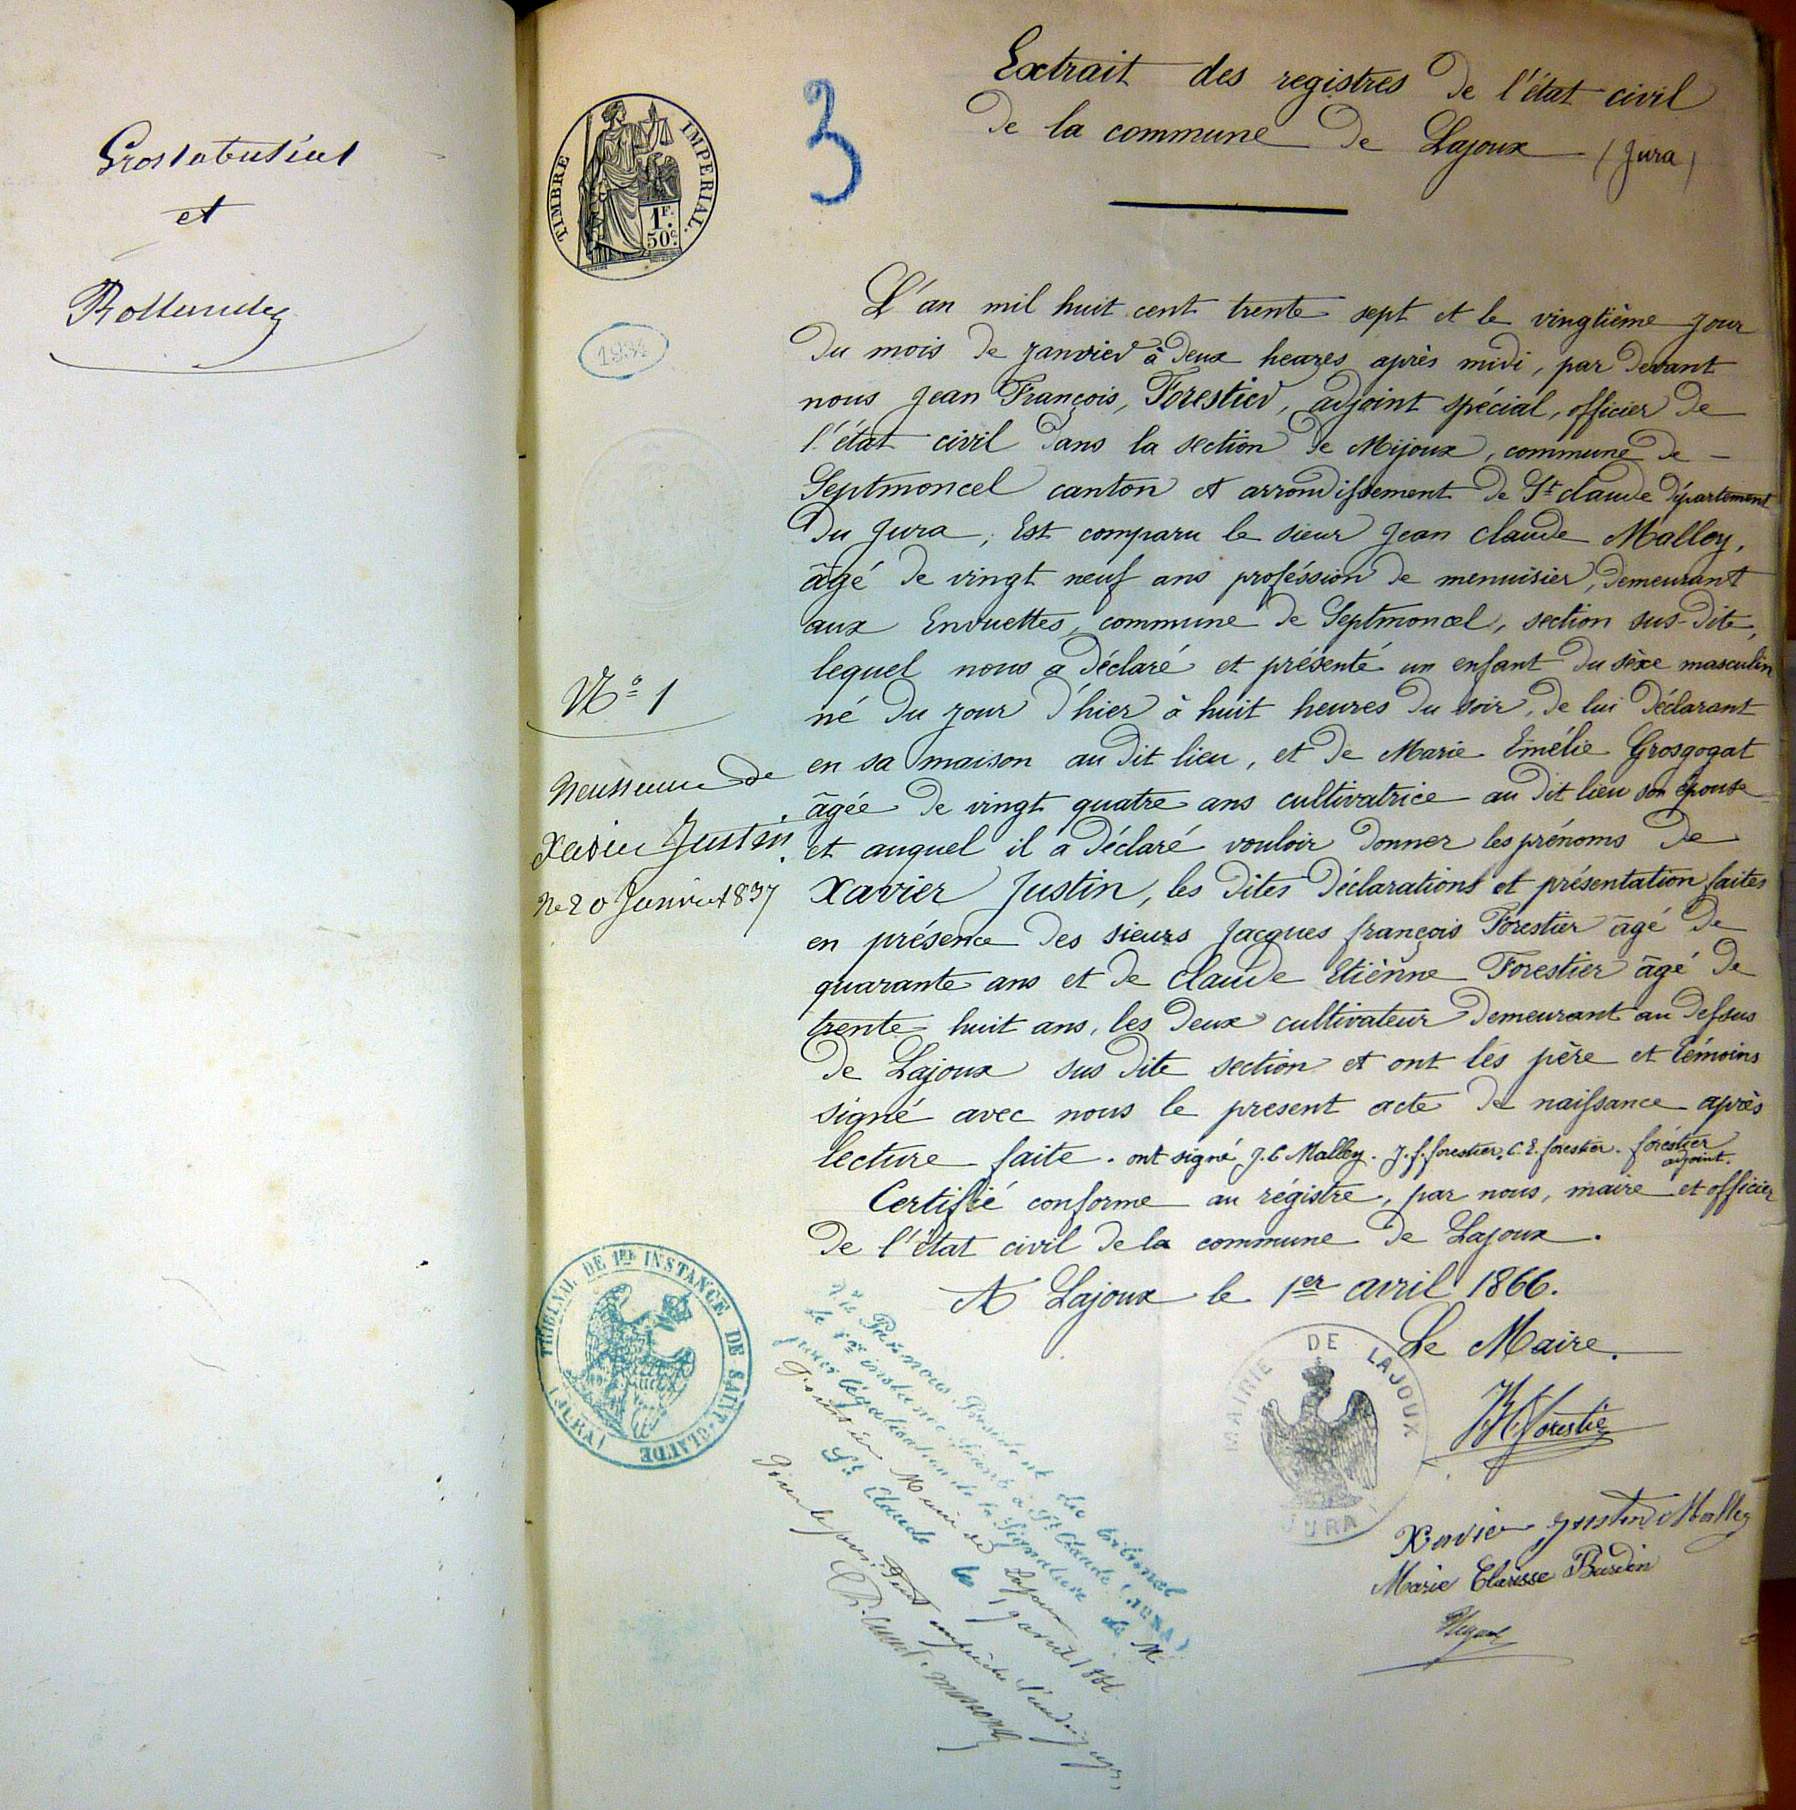 et
TIMBRE IMPERIAL.
1F.
50c.
3
Extrait des registres de l'état civil
de la commune de Lajoux (Jura)
L'an mil huit cent trente sept et le vingtième jour
du mois de janvier à deux heures après midi, par devant
nous Jean François, Forestier, adjoint spécial, officier de
l'état civil dans la section de Mijoux, commune de -
Septmoncel canton et arrondissement de St claude département
du Jura, Est comparu le sieur Jean claude Malley,
âgé de vingt neuf ans proféssion de menuisier, demeurant
aux commune de Septmoncel, section sus-dite,
lequel nous a déclaré et présenté un enfant du sèxe masculin
né du jour d'hier à huit heures du soir, de lui déclarant
en sa maison au dit lieu, et de Marie Emélie Grosgogat
âgée de vingt quatre ans cultivatrice au dit lieu son épouse
et auquel il a déclaré vouloir donner les prénoms de
Xavier Justin, les dites déclarations et présentation faites
en présence des sieurs Jacques françois Forestier âgé de
quarante ans et de Claude Etiènne Forestier âgé de
trente huit ans, les deux cultivateur demeurant au dessus
de Lajoux sus dite section et ont les père et témoins
signé avec nous le present acte de naissance après
lecture faite. ont signé J. C Malley. J. f. forestier, C. E. forestier. foréstier
adjoint.
Certifié conforme au régistre, par nous, maire et officier
de l'état civil de la commune de Lajoux.
A Lajoux le 1er avril 1866.
Le Maire.
forestier
Xavier justin Malley
Marie Clarisse Burdin
N° 1
Naissance de
Xavier Justin
Né 20 Janvier 1837
TRIBUNAL DE 1RE INSTANCE DE SAINT-CLAUDE
(JURA)
MAIRIE DE LAJOUX
JURA
Vu Par nous, Président du tribunal
de 1re instance séant à St Claude (JURA)
pour légalisation de la Signature de M
Forestier Maire de Lajoux
St Claude le 9 avril 1866